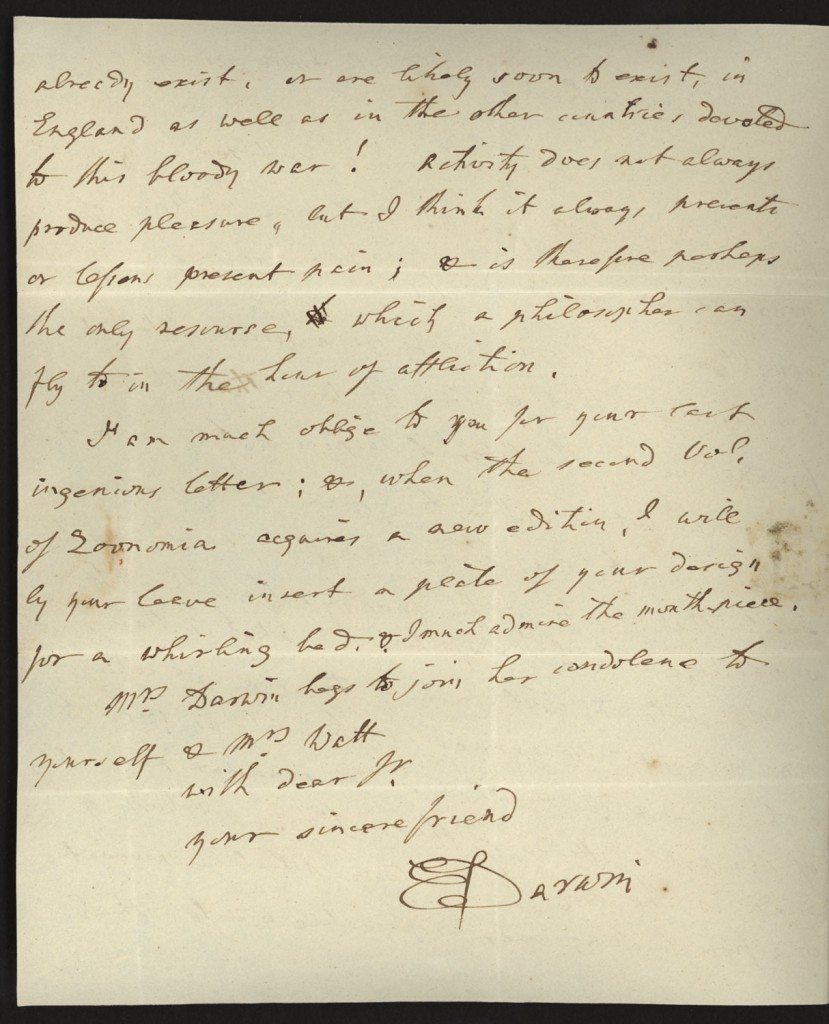 already exist, or are likely soon to exist, in
England as well as in the other countries devoted
to this bloody war! activity does not always
produce pleasure, but I think it always prevents
or lessens present pain; & is therefore perhaps
the only resourse, which a philosopher can
fly to in the hour of affliction.
I am much oblige to you for your last
ingenious letter; &, when the second Vol.
of Zoonomia acquires a new edition, I will
by your leave insert a plate of your design
for a whirling bed. & I much admire the mouth-piece.
Mrs Darwin begs to join her condolene to
yourself & Mrs Watt
with dear Sr.
your sincere friend
E Darwin